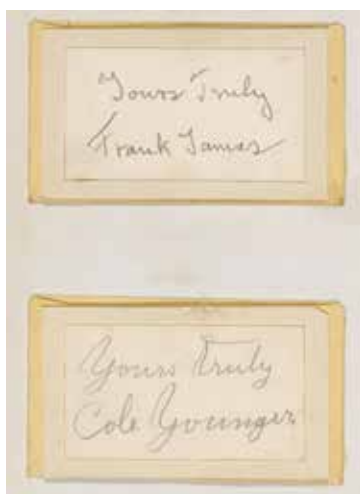 Yours Truly
Frank James
Yours Truly
Cole Younger